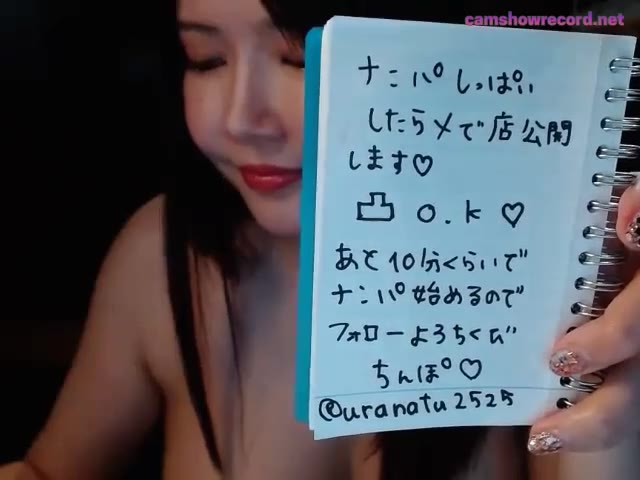 camshowrecord.net
ナンパしっぱい
したらメで店公開
します♡
凸 O.K ♡
あと10分くらいで
ナンパ始めるので
フォローよろちくび
ちんぽ♡
@uranatu2525